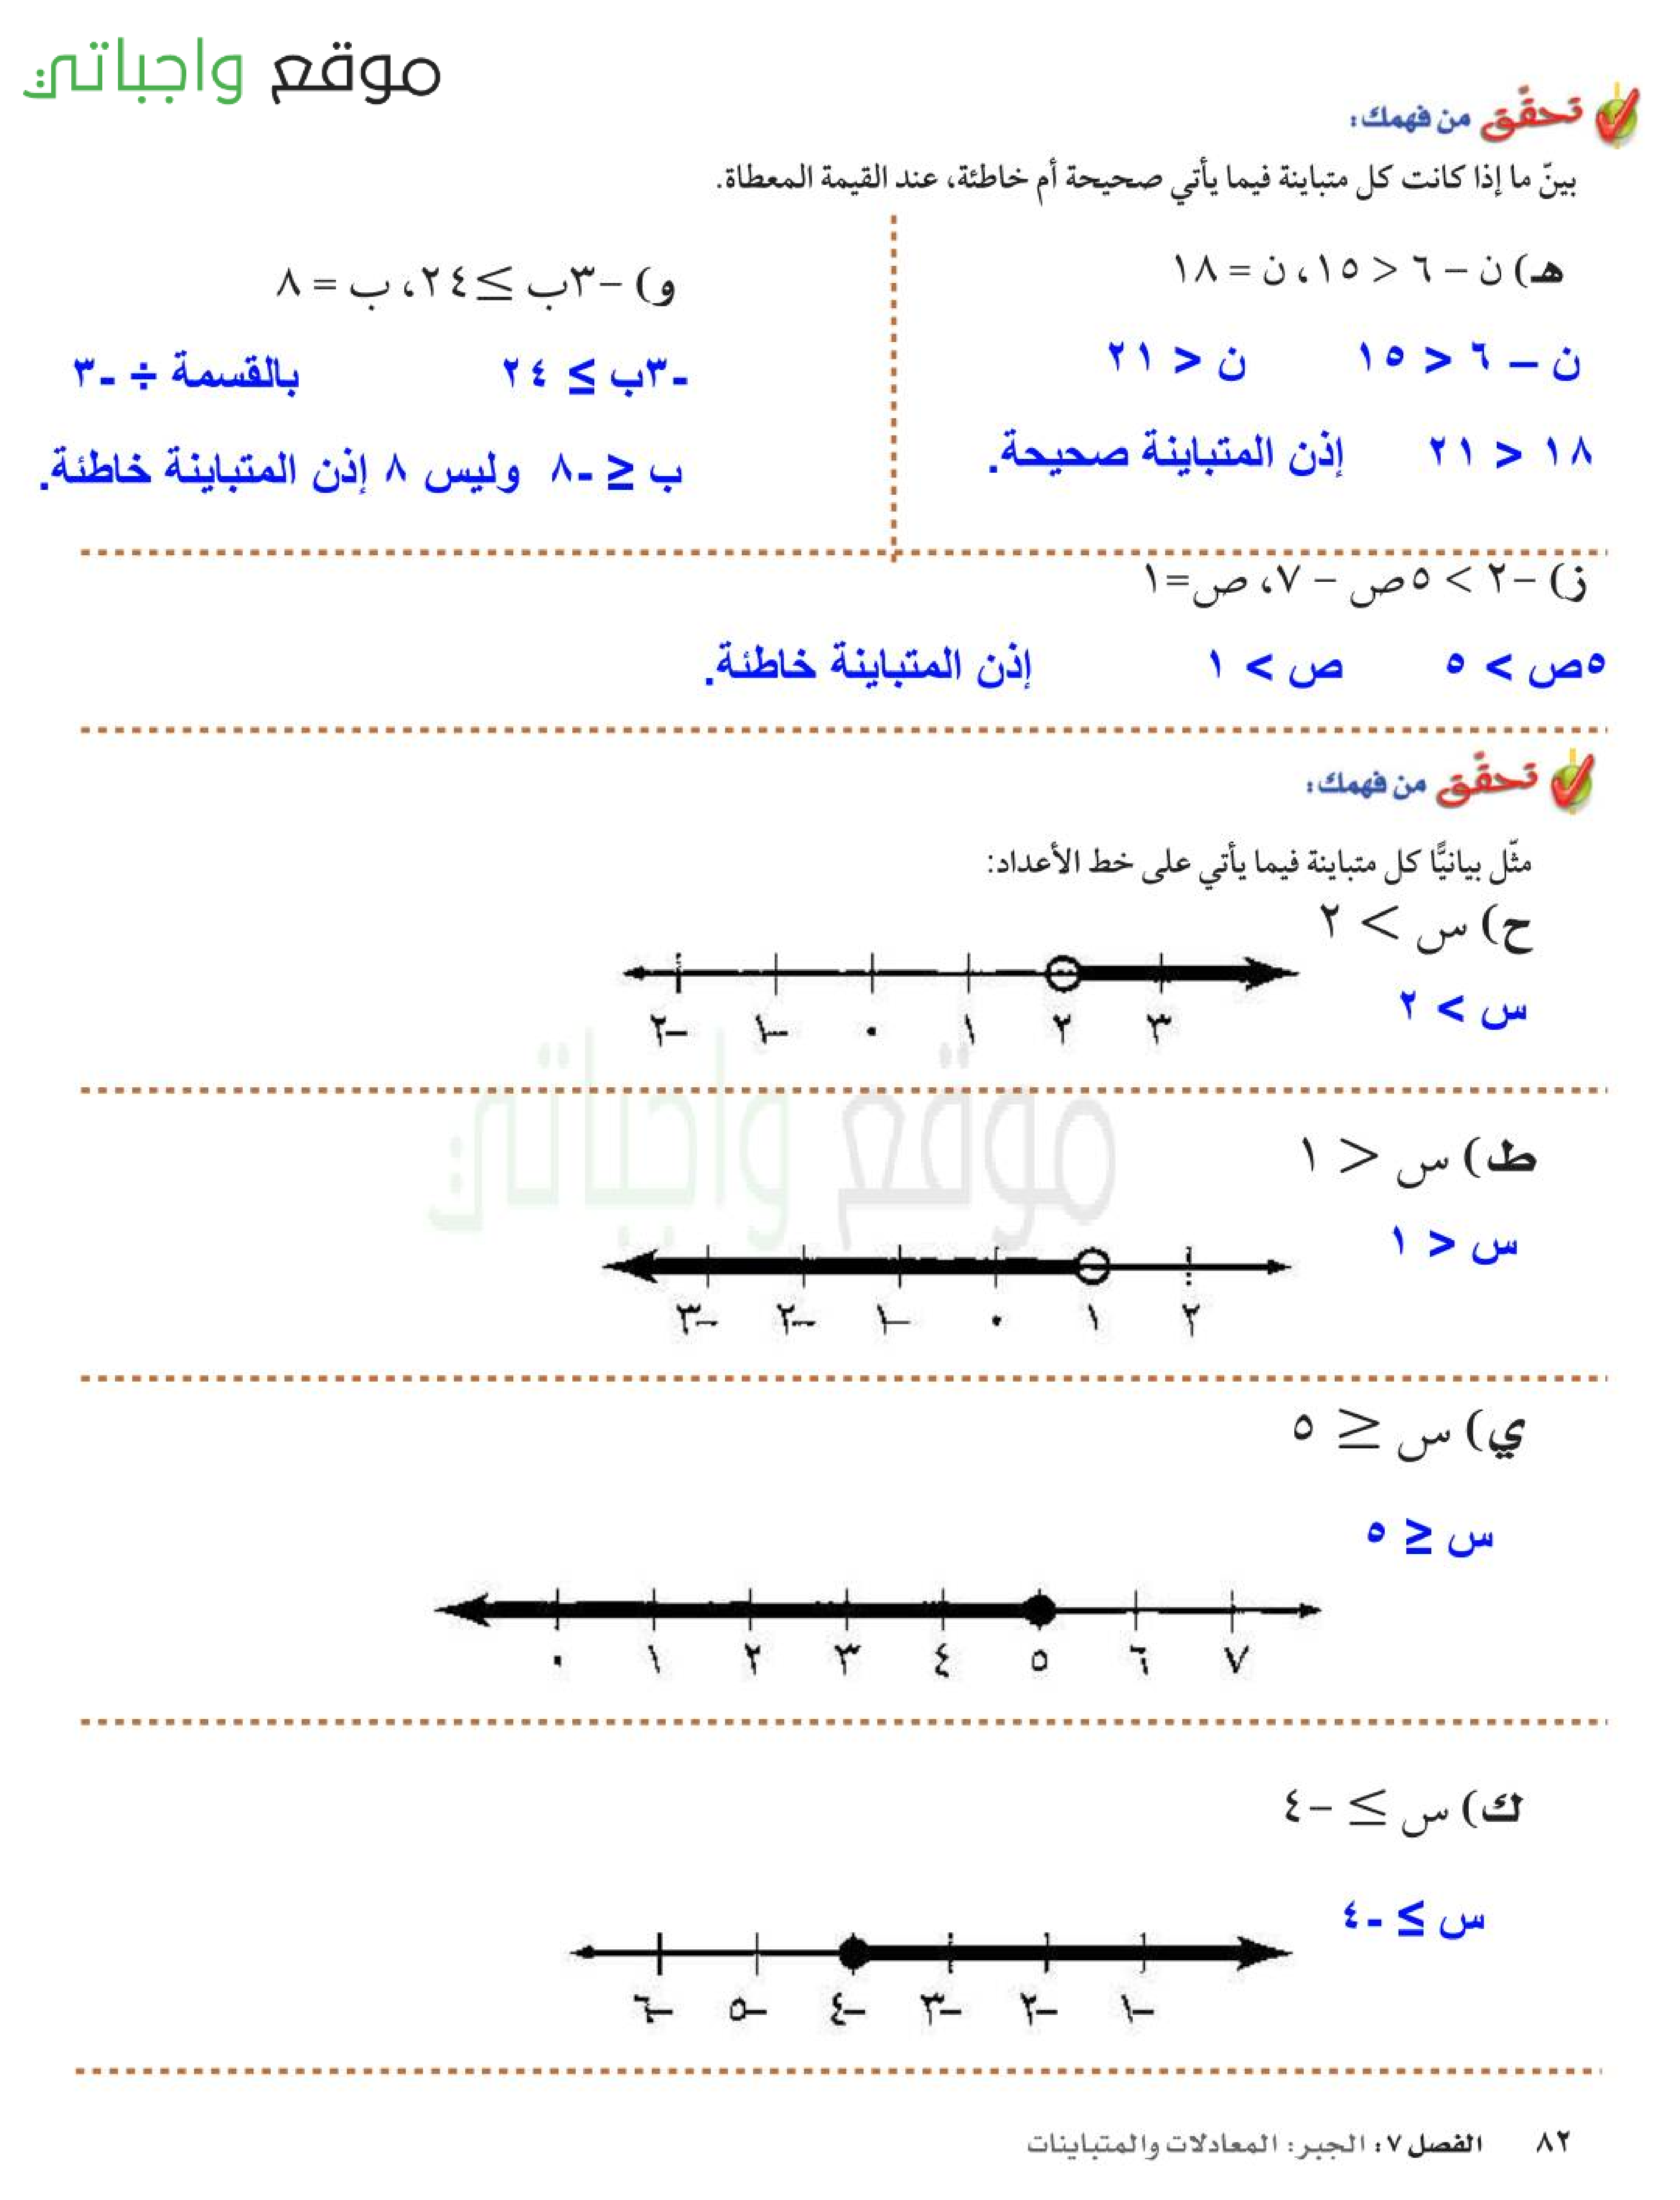 موقع واجباتي
تحقق من فهمك:
بينّ ما إذا كانت كل متباينة فيما يأتي صحيحة أم خاطئة، عند القيمة المعطاة.
هـ) ن – ٦ < ١٥، ن = ١٨
ن – ٦ < ١٥ ن < ٢١
١٨ < ٢١ إذن المتباينة صحيحة.
و) –٣ب ≥ ٢٤، ب = ٨
-٣ب ≥ ٢٤ بالقسمة ÷ -٣
ب ≤ -٨ وليس ٨ إذن المتباينة خاطئة.
ز) –٢ > ٥ص – ٧، ص=١
٥ص > ٥ ص > ١ إذن المتباينة خاطئة.
تحقق من فهمك:
مثّل بيانيًّا كل متباينة فيما يأتي على خط الأعداد:
ح) س > ٢
س > ٢
–٢ –١ ٠ ١ ٢ ٣
ط) س < ١
س < ١
–٣ –٢ –١ ٠ ١ ٢
ي) س ≤ ٥
س ≤ ٥
٠ ١ ٢ ٣ ٤ ٥ ٦ ٧
ك) س ≥ –٤
س ≥ -٤
–٦ –٥ –٤ –٣ –٢ –١
٨٢ الفصل ٧: الجبر: المعادلات والمتباينات